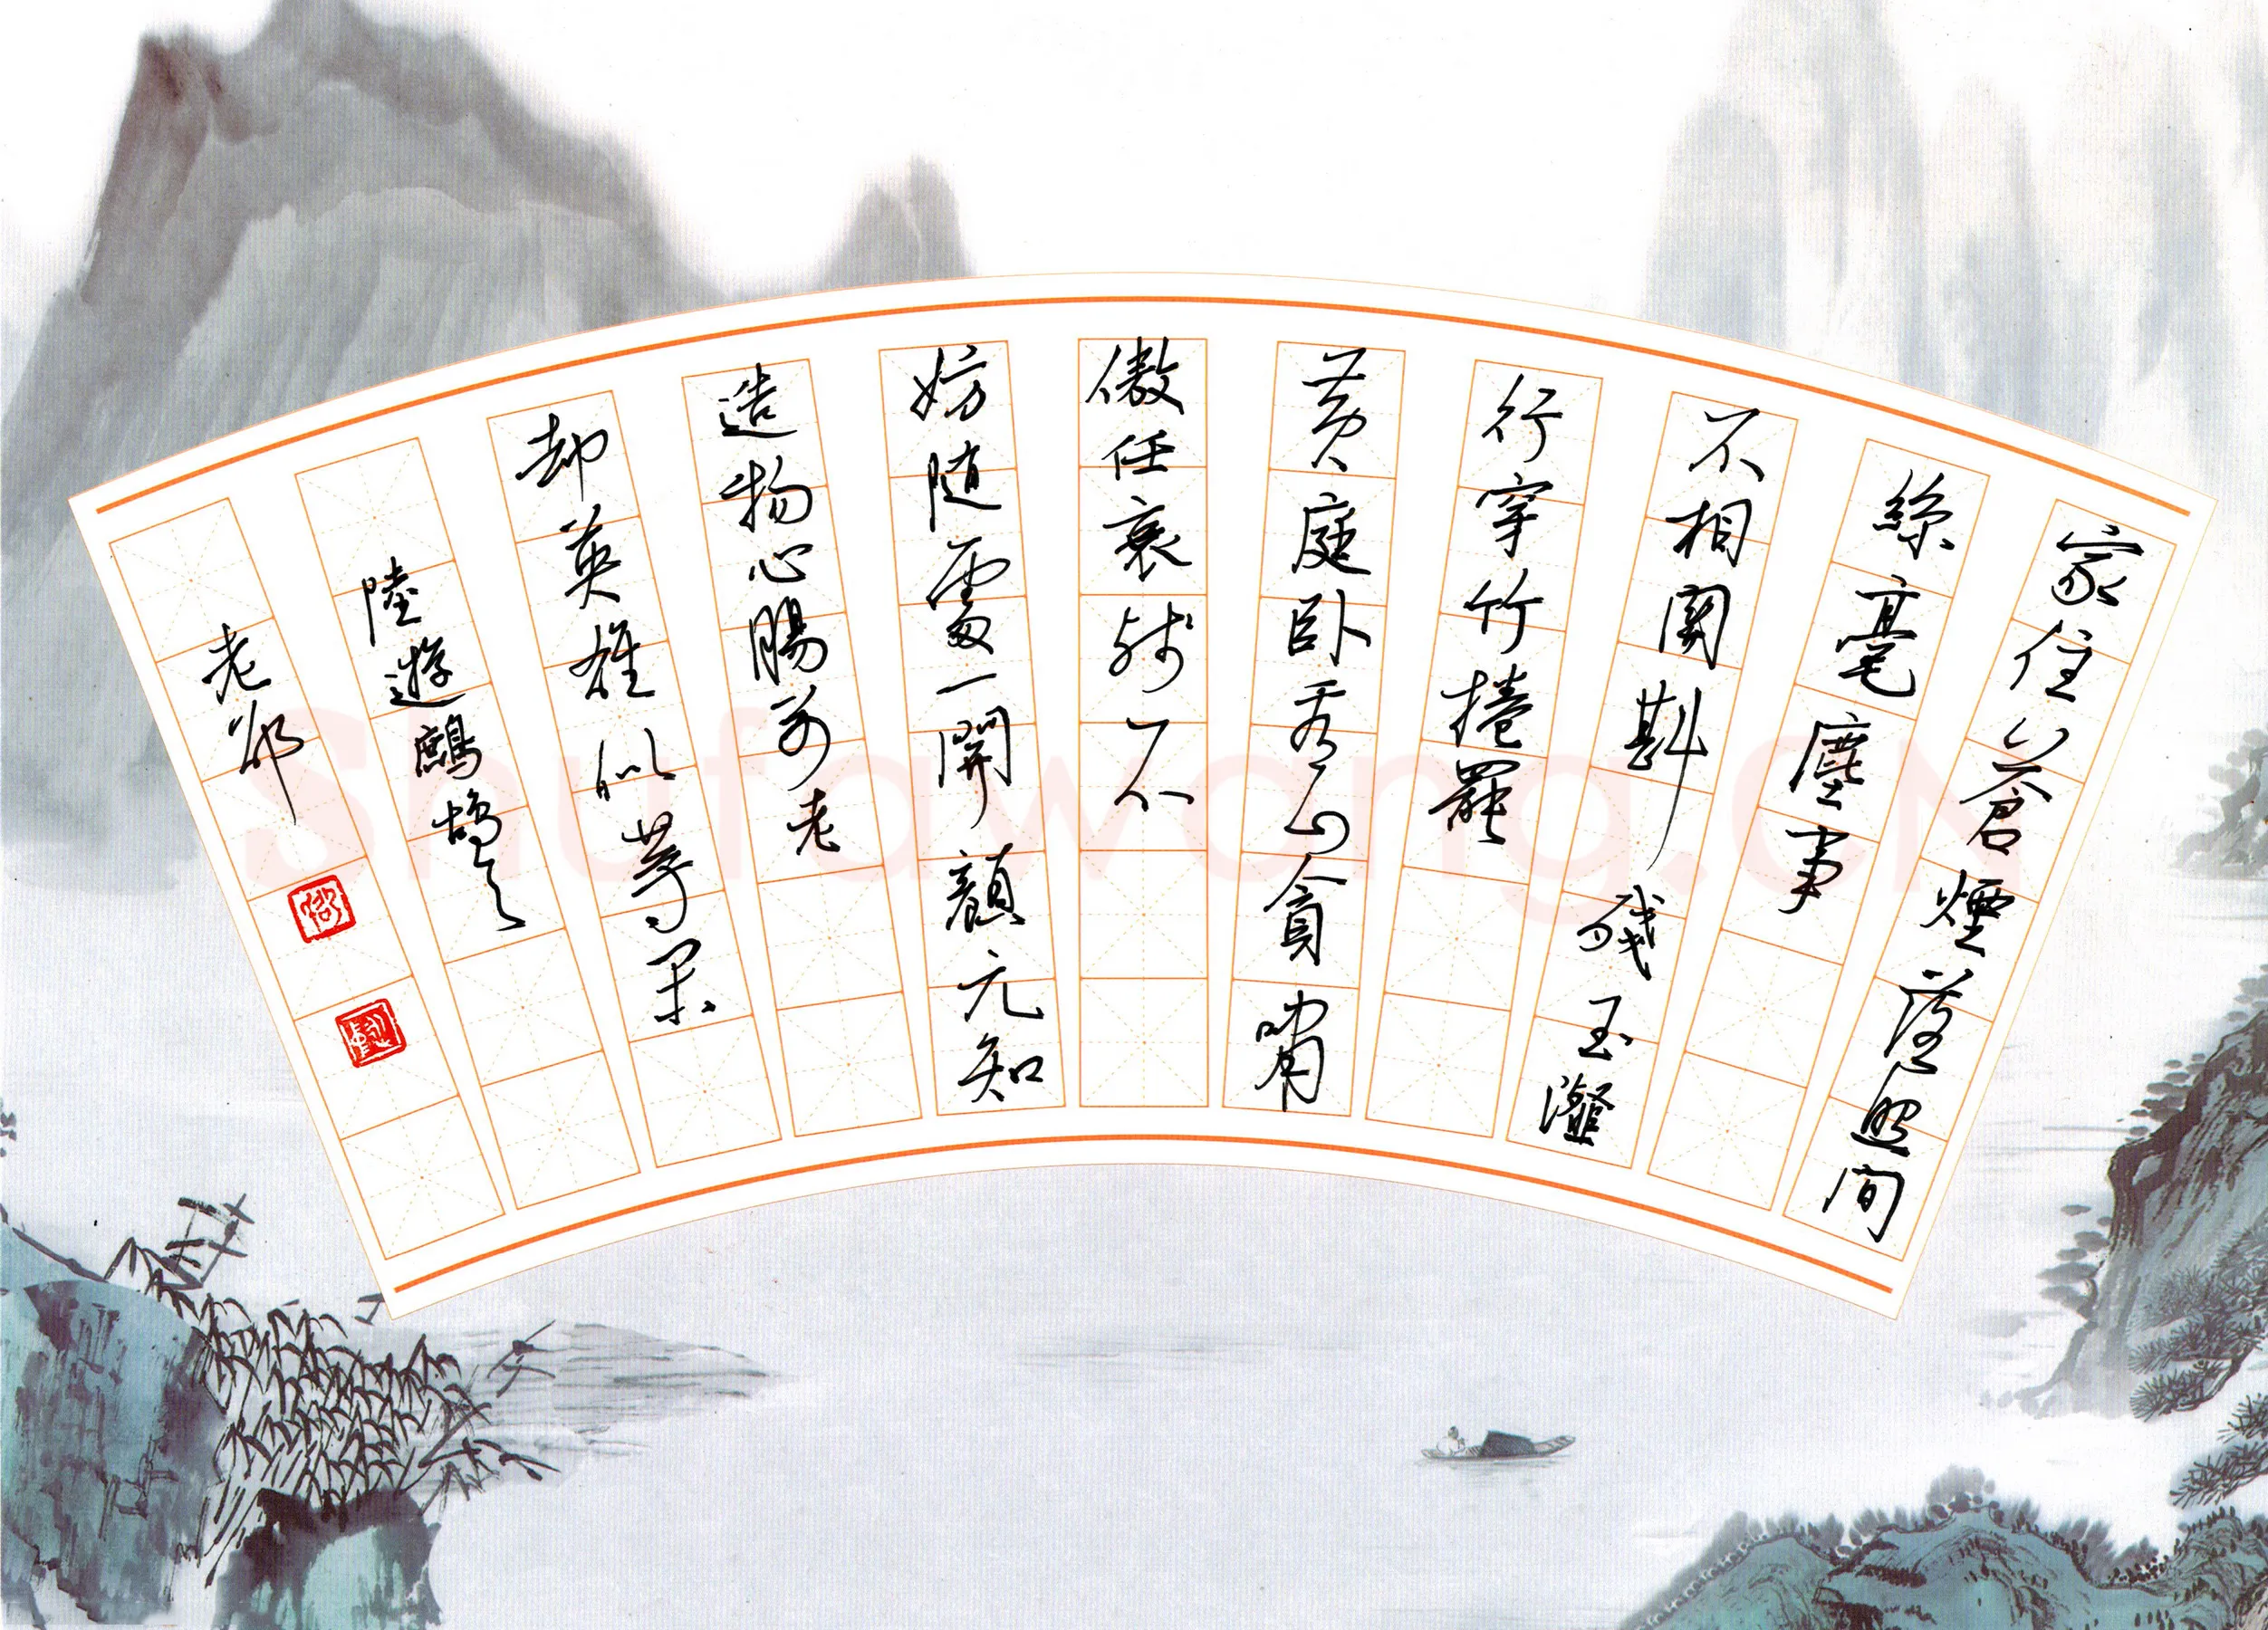 家住蒼煙落照間
絲毫塵事
不相關斟殘玉瀣
行穿竹捲罷
黃庭卧看山貪嘯
傲任衰殘不
妨随處一開顏元知
造物心腸别老
却英雄似等閑
陸遊鷓鴣天
老
Shufawang.CN